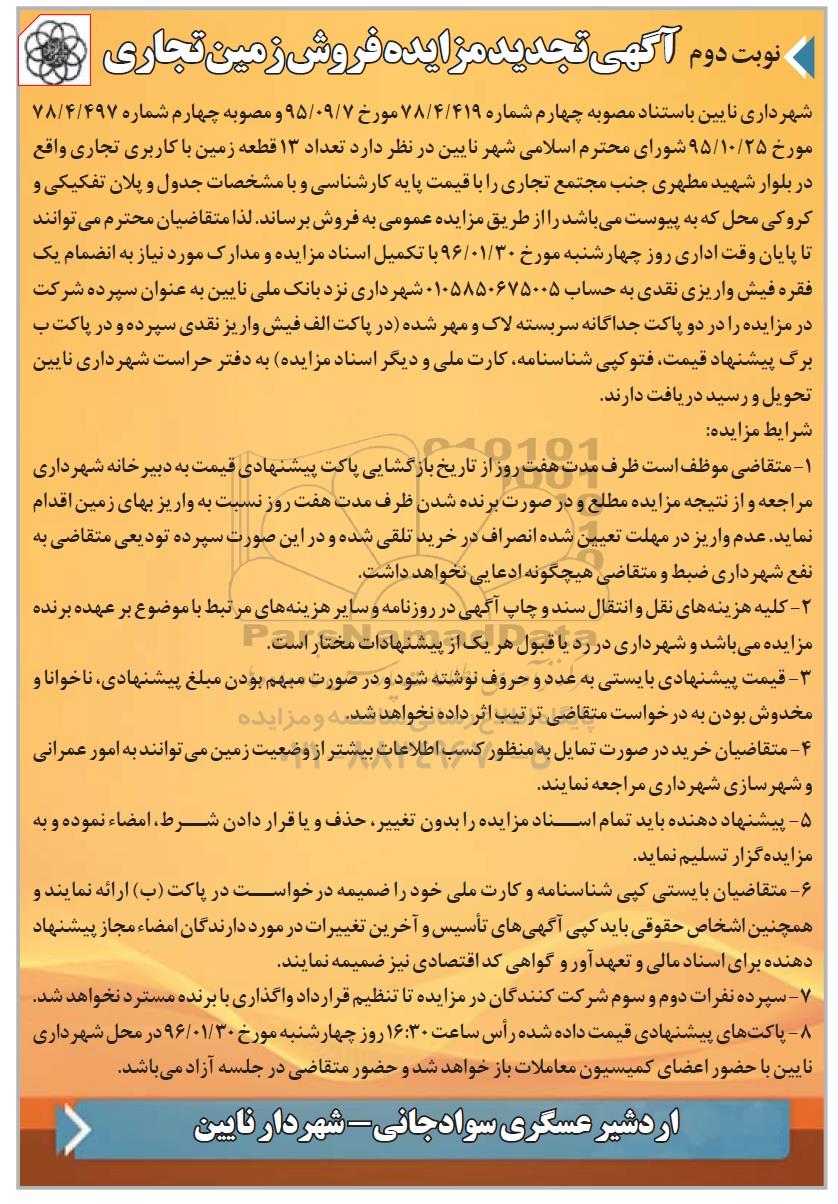 نوبت دوم آگهی تجدید مزایده فروش زمین تجاری
شهرداری نایین باستناد مصوبه چهارم شماره ۷۸/۴/۴۱۹ مورخ ۹۵/۰۹/۷ و مصوبه چهارم شماره ۷۸/۴/۴۹۷
مورخ ۹۵/۱۰/۲۵ شورای محترم اسلامی شهر نایین در نظر دارد تعداد ۱۳ قطعه زمین با کاربری تجاری واقع
در بلوار شهید مطهری جنب مجتمع تجاری را با قیمت پایه کارشناسی و با مشخصات جدول و پلان تفکیکی و
کروکی محل که به پیوست می‌باشد را از طریق مزایده عمومی به فروش برساند. لذا متقاضیان محترم می‌توانند
تا پایان وقت اداری روز چهارشنبه مورخ ۹۶/۰۱/۳۰ با تکمیل اسناد مزایده و مدارک مورد نیاز به انضمام یک
فقره فیش واریزی نقدی به حساب ۰۱۰۵۸۵۰۶۷۵۰۰۵ شهرداری نزد بانک ملی نایین به عنوان سپرده شرکت
در مزایده را در دو پاکت جداگانه سربسته لاک و مهر شده (در پاکت الف فیش واریز نقدی سپرده و در پاکت ب
برگ پیشنهاد قیمت، فتوکپی شناسنامه، کارت ملی و دیگر اسناد مزایده) به دفتر حراست شهرداری نایین
تحویل و رسید دریافت دارند.
شرایط مزایده:
۱- متقاضی موظف است ظرف مدت هفت روز از تاریخ بازگشایی پاکت پیشنهادی قیمت به دبیرخانه شهرداری
مراجعه و از نتیجه مزایده مطلع و در صورت برنده شدن ظرف مدت هفت روز نسبت به واریز بهای زمین اقدام
نماید. عدم واریز در مهلت تعیین شده انصراف در خرید تلقی شده و در این صورت سپرده تودیعی متقاضی به
نفع شهرداری ضبط و متقاضی هیچگونه ادعایی نخواهد داشت.
۲- کلیه هزینه‌های نقل و انتقال سند و چاپ آگهی در روزنامه و سایر هزینه‌های مرتبط با موضوع بر عهده برنده
مزایده می‌باشد و شهرداری در رد یا قبول هر یک از پیشنهادات مختار است.
ParsNamadData
۳- قیمت پیشنهادی بایستی به عدد و حروف نوشته شود و در صورت مبهم بودن مبلغ پیشنهادی، ناخوانا و
مخدوش بودن به درخواست متقاضی ترتیب اثر داده نخواهد شد.
پایگاه اطلاع رسانی مناقصه و مزایده
۴- متقاضیان خرید در صورت تمایل به منظور کسب اطلاعات بیشتر از وضعیت زمین می‌توانند به امور عمرانی
۰۲۱-۸۸۳۴۹۶۷۰-۵
و شهرسازی شهرداری مراجعه نمایند.
۵- پیشنهاد دهنده باید تمام اســـناد مزایده را بدون تغییر، حذف و یا قرار دادن شـــرط، امضاء نموده و به
مزایده‌گزار تسلیم نماید.
۶- متقاضیان بایستی کپی شناسنامه و کارت ملی خود را ضمیمه درخواســـت در پاکت (ب) ارائه نمایند و
همچنین اشخاص حقوقی باید کپی آگهی‌های تأسیس و آخرین تغییرات در مورد دارندگان امضاء مجاز پیشنهاد
دهنده برای اسناد مالی و تعهدآور و گواهی کد اقتصادی نیز ضمیمه نمایند.
۷- سپرده نفرات دوم و سوم شرکت کنندگان در مزایده تا تنظیم قرارداد واگذاری با برنده مسترد نخواهد شد.
۸- پاکت‌های پیشنهادی قیمت داده شده رأس ساعت ۱۶:۳۰ روز چهارشنبه مورخ ۹۶/۰۱/۳۰ در محل شهرداری
نایین با حضور اعضای کمیسیون معاملات باز خواهد شد و حضور متقاضی در جلسه آزاد می‌باشد.
اردشیر عسگری سوادجانی – شهردار نایین